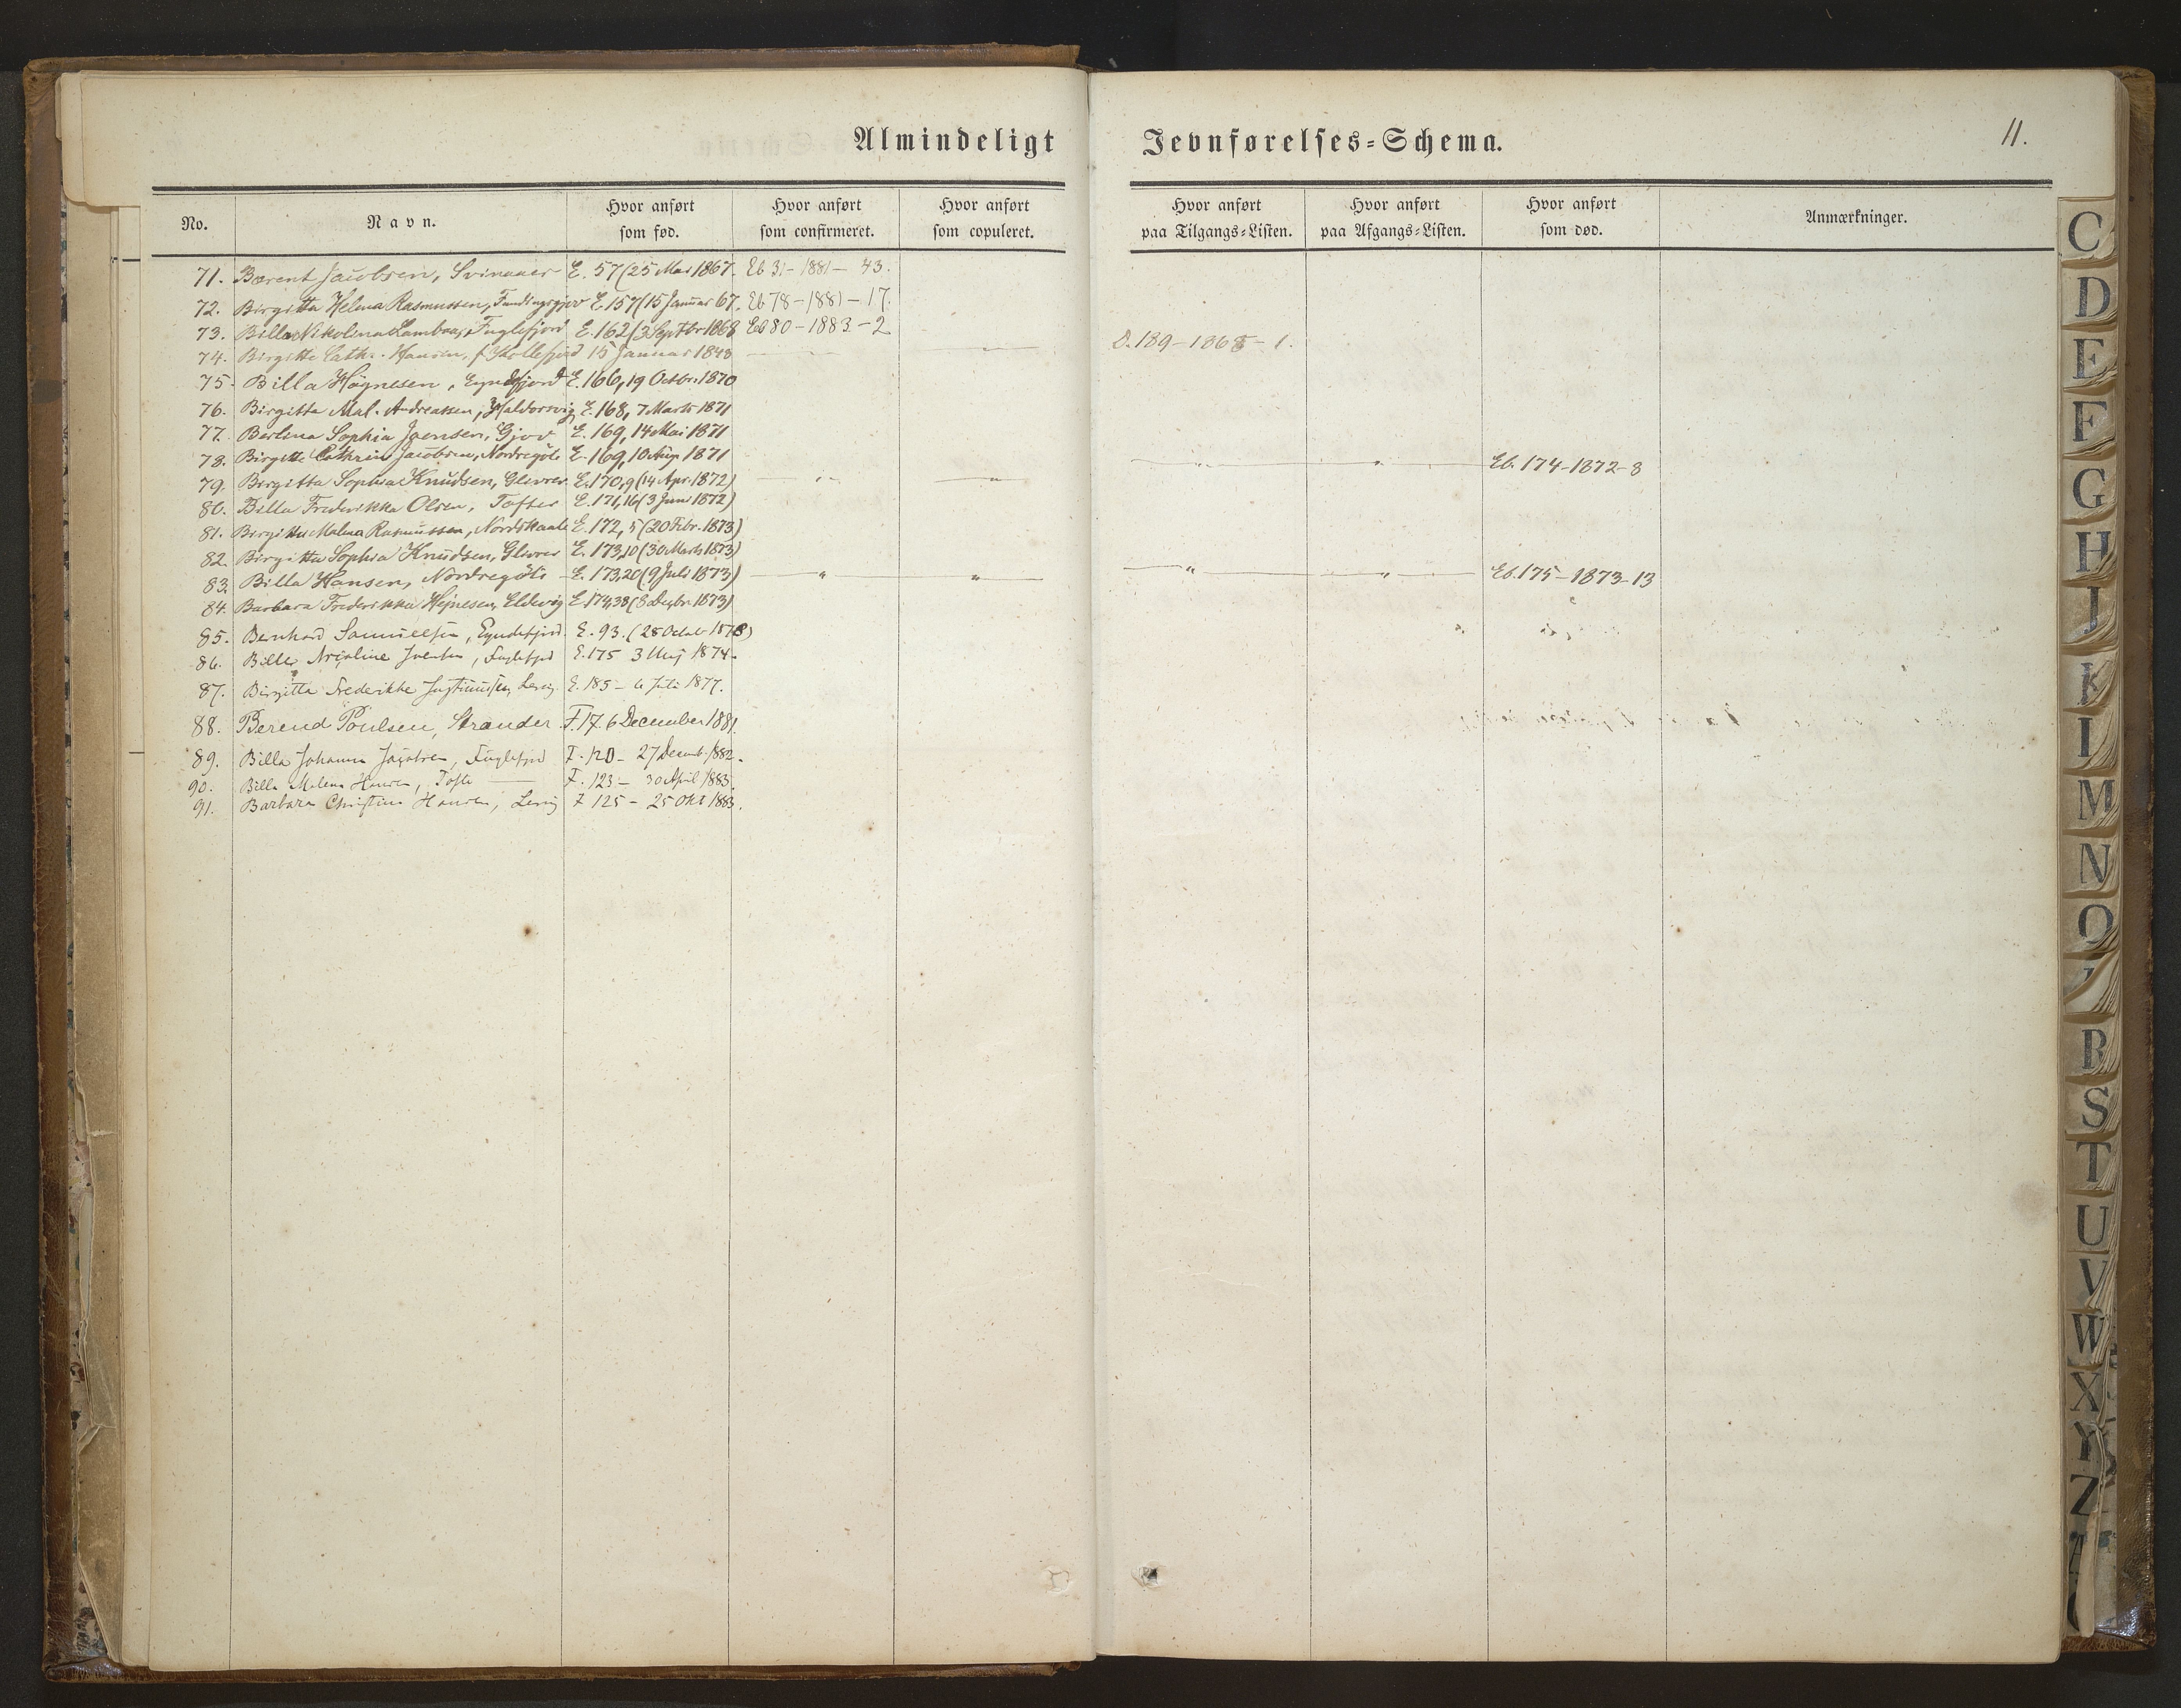 Almindeligt Jevnførelses=Schema.
11.
No. Navn. Hvor anført som fød. Hvor anført som confirmeret. Hvor anført som copuleret. Hvor anført paa Tilgangs=Listen. Hvor anført paa Afgangs=Listen. Hvor anført som død. Anmærkninger.
71. Berent Jacobsen, Svinaaer E. 57 (25 Mai 1867. Eb 31 - 1881 - 43.
72. Birgitta Helena Rasmussen, Fundingsgjov E. 157 (15 Januar 67. Eb 78 - 1881 - 17.
73. Billa Nikolina Lambaa, Fuglefjord E. 162 (3 Septbr 1868 Eb 80 - 1883 - 2
74. Birgitte Cath. Hansen, f. Kollefjord 15 Januar 1848 D. 189 - 1868 - 1.
75. Billa Høgnesen, Eyndefjord E. 166, 19 Octbr. 1870
76. Birgitta Mal. Andreassen, Haldorsvig E. 168, 7 Marts 1871
77. Berlina Sophia Joensen, Gjov E. 169, 14 Mai 1871
78. Birgitte Cathrine Jacobsen, Nordregöte E. 169, 10 Aug. 1871 " " Eb. 174-1872-8
79. Birgitta Sophia Knudsen, Glivrer E. 170, 9 (14 Apr. 1872) " "
80. Billa Frederikka Olsen, Tofter E. 171, 16 (3 Juni 1872)
81. Birgitta Malena Rasmussen, Nordskaale E. 172, 5 (20 Febr. 1873)
82. Birgitta Sophia Knudsen, Glivrer E. 173, 10 (30 Marts 1873)
83. Billa Hansen, Nordregöte E. 173, 20 (9 Juli 1873) " " " " Eb. 175 - 1873 - 13
84. Barbara Frederikka Hejnesen, Eldevig E. 174, 38 (8 Decbr. 1873)
85. Bernhard Samuelsen, Eyndefjord. E. 93. (28 Octob 1878)
86. Bille, Fuglefjd E. 175 3 Maj 1874.
87. Birgitta Frederikke Justinussen, Lervig. E. 185 - 6 Juli 1877.
88. Berend Poulsen, Strander F. 17. 6 December 1881.
89. Billa Johanna Jacobsen, Fuglefjord F. 120 - 27 Decemb. 1882.
90. Billa Malena Hansen, Tofte F. 123 - 30 April 1883.
91. Barbara Christine Hansen, Lervig F 125 - 25 Okt 1883.
C
D
E
F
G
H
J
K
L
M
N
O
R
S
T
U
V
W
X
Y
Z